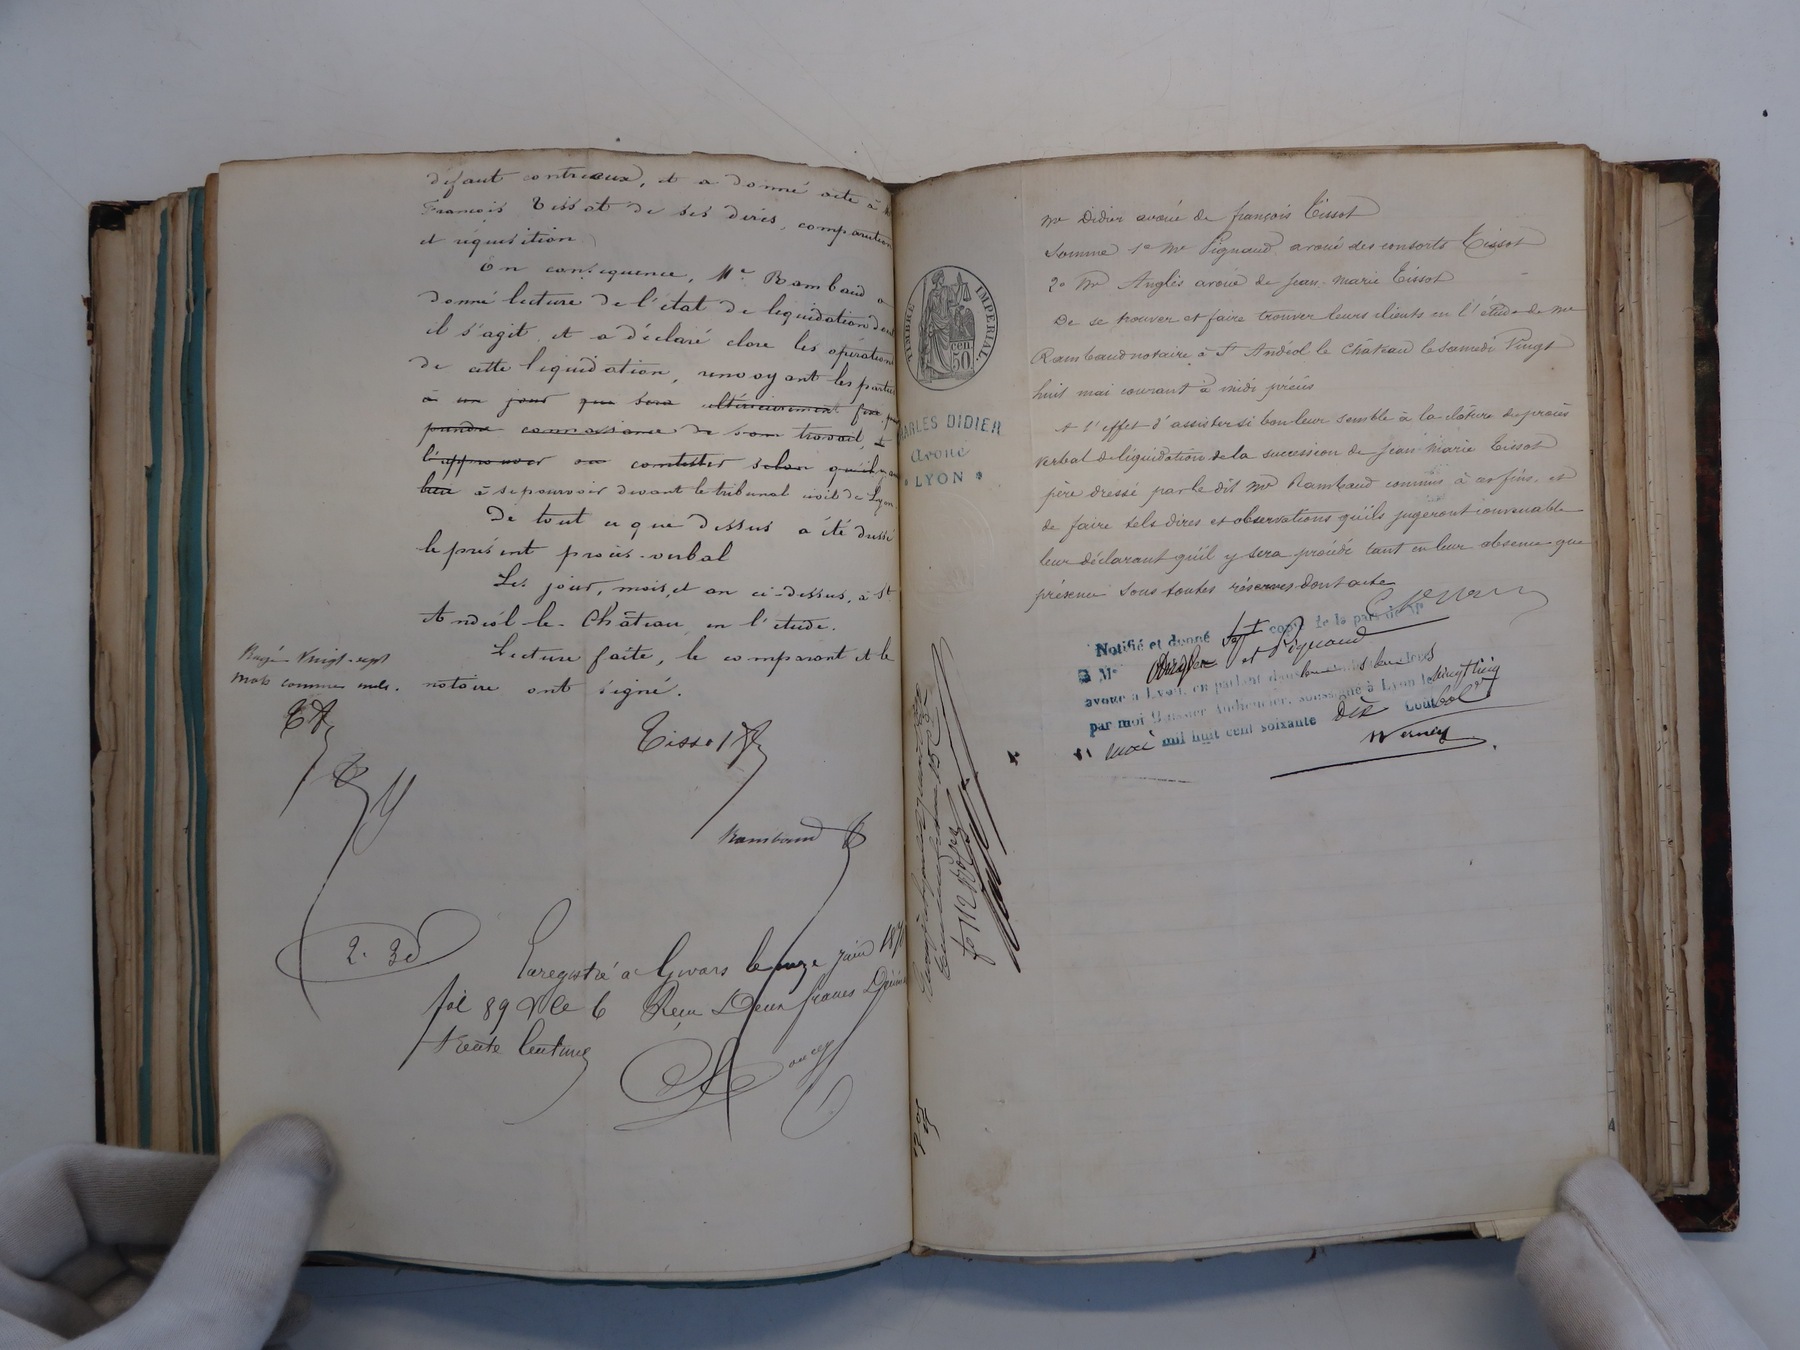 défaut contre eux, et a donné acte à Mr
François Tissot de ses dires, comparution
et réquisition
En conséquence, Me Rambaud a
donné lecture de l'état de liquidation dont
il s'agit, et a déclaré clore les opérations
de cette liquidation, renvoyant les parties
à un jour qui sera ultérieurement fixé pour
prendre connaissance de son travail, et
l'approuver ou contester selon qu'il
à se pourvoir devant le tribunal civil de Lyon
De tout ce que dessus a été dressé
le présent procès-verbal
Les jour, mois, et an ci-dessus, à St
Andéol-le-Château, en l'étude.
Lecture faite, le comparant et le
notaire ont signé.
Rayé vingt-sept
mots comme nuls.
Tissot
Rambaud
2. 30
Enregistré à Givors le onze juin 187
fol 89 Rle 6 Reçu Deux francs Décime
trente centimes
TIMBRE IMPERIAL
50 cen.
CHARLES DIDIER
Avoué
LYON
Me Didier avoué de françois Tissot
Somme 1o Me Pignaud avoué des consorts Tissot
2o Me Anglès avoué de Jean-Marie Tissot
De se trouver et faire trouver leurs clients en l'étude de Me
Rambaud notaire à St Andéol le Château le samedi Vingt
huit mai courant à midi précis
A l'effet d'assister si bon leur semble à la clôture du procès
verbal de liquidation de la succession de Jean-Marie Tissot
père dressé par le dit Me Rambaud commis à ces fins, et
de faire tels dires et observations qu'ils jugeront convenable
leur déclarant qu'il y sera procédé tant en leur absence que
présence sous toutes réserves dont acte
Notifié et donné copie de la part de Me
à Me Anglès et Pignaud
avoué à Lyon, en parlant dans
par moi Huissier Audiencier, soussigné à Lyon le vingt cinq
mai mil huit cent soixante dix Cout
Verney